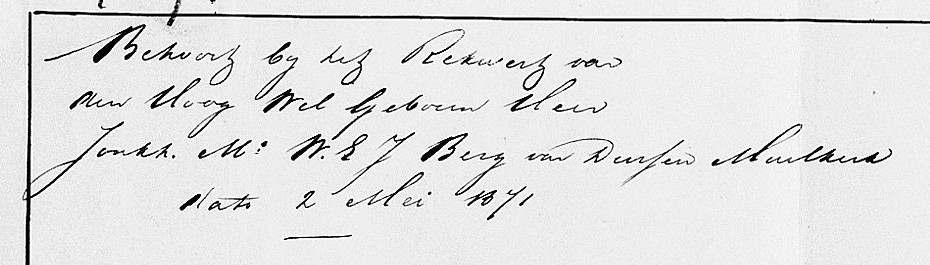 Behoort by het Rekwest van
den Hoog Wel Geboren Heer
Jonkh. Mr. W. E J Berg van Dussen Muilkerk
dato 2 Mei 1871